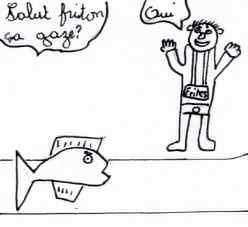 Salut friton
ça gaze?
Oui
Frites